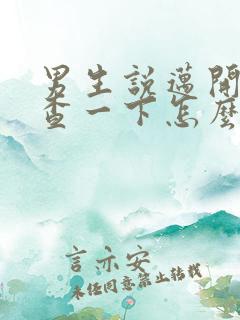 男生說邁開
查一下怎麼
言亦安
未经同意禁止转载